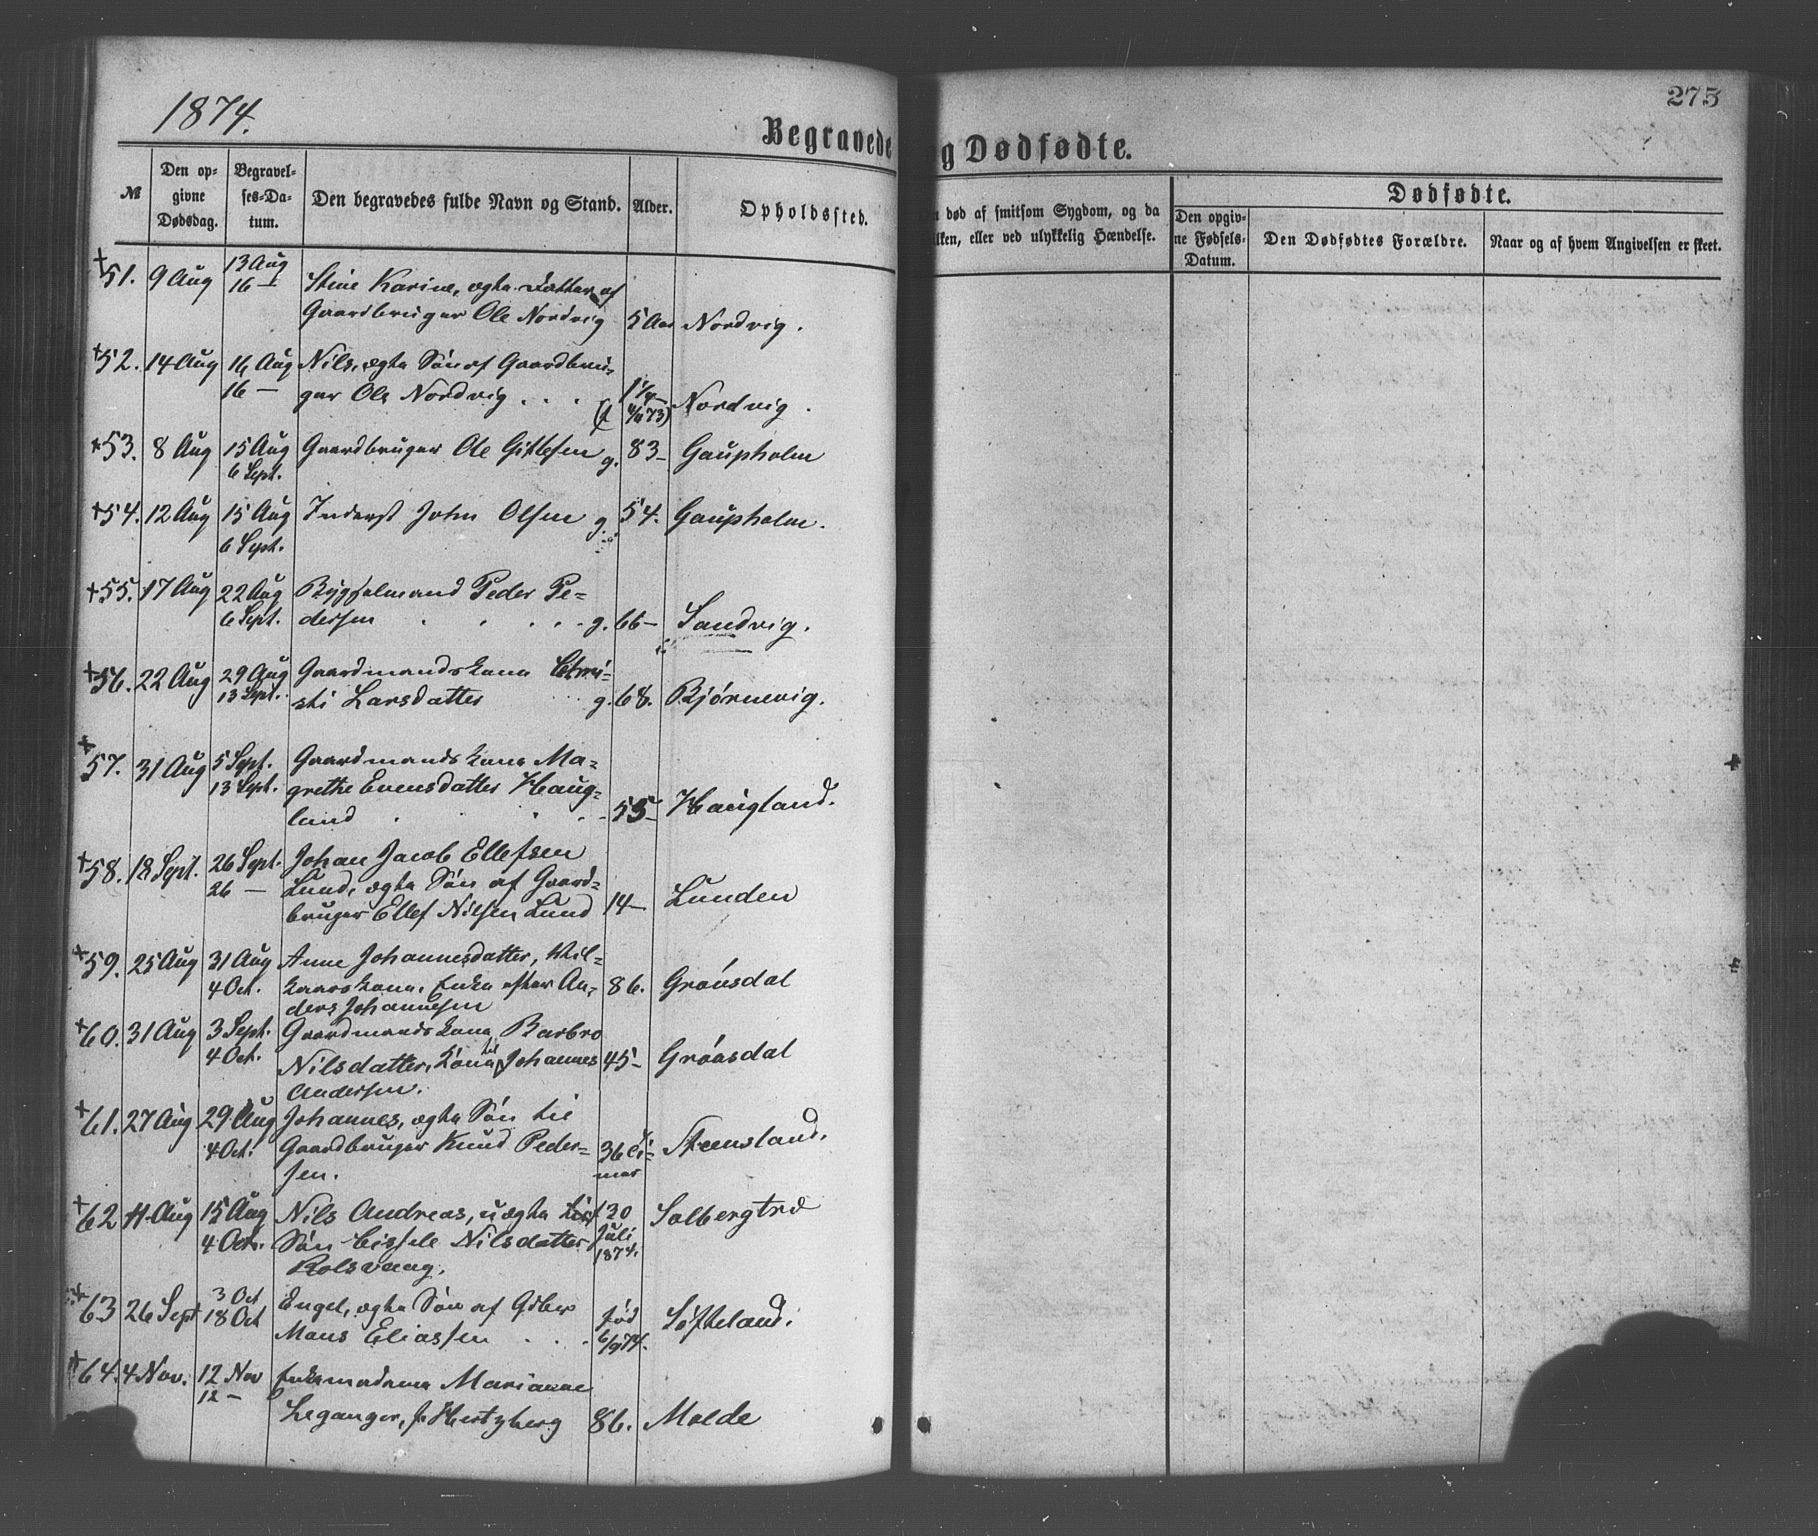 1874.
275
Begravede
g Dødfødte.
№
Den op-
givne
Dødsdag.
Begravel-
ses-Da-
tum.
Den begravedes fulde Navn og Stand.
Alder.
Opholdssted.
død af smitsom Sygdom, og da
ilken, eller ved ulykkelig Hændelse.
Dødfødte.
Den opgiv-
ne Fødsels-
Datum.
Den Dødfødtes Forældre.
Naar og af hvem Angivelsen er skeet.
+51. 9 Aug 13 Aug Stine Karine, ægte Datter af
16 — Gaardbruger Ole Nordvig 5 Aar Nordvig.
+52. 14 Aug 16 Aug Nils, ægte Søn af Gaardbru-
16 — ger Ole Nordvig . . . 1 1/4 — Nordvig.
+53. 8 Aug 15 Aug Gaardbruger Ole Gitlesen g. 83 — Gaupholm
6 Sept.
+54. 12 Aug 15 Aug Inderst John Olsen g. 54. Gaupholm.
6 Sept.
+55. 17 Aug 22 Aug Bygselmand Peder Pe-
6 Sept. dersen . . . . . g. 66 — Sandvig.
+56. 22 Aug 29 Aug Gaardmandskone Chri-
13 Sept. sti Larsdatter g. 68. Bjørnevig.
+57. 31 Aug 5 Sept. Gaardmandskone Ma-
13 Sept. grethe Evensdatter Haug-
land . . . . 55 — Haugland.
+58. 18 Sept. 26 Sept. Johan Jacob Ellefsen
26 — Lund, ægte Søn af Gaard-
bruger Ellef Nilsen Lund 14 — Lunden
+59. 25 Aug 31 Aug Anne Johannesdatter, Kil-
4 Oct. kaarskone, Enke efter An- 86. Grønsdal
ders Johannesen
+60. 31 Aug 3 Sept. Gaardmandskone Barbro
4 Oct. Nilsdatter, Kone til Johannes 45 — Grønsdal
Andersen.
+61. 27 Aug 29 Aug Johannes, ægte Søn til
4 Oct. Gaardbruger Knud Peder- 36 Ti- Steensland.
sen. mer
+62 11 Aug 15 Aug Nils Andreas, uægte f 30 Solbergtræ
4 Oct. Søn Cissele Nilsdatter Juli
Rolsvaag. 1874.
+63 26 Sept 3 Oct Engel, ægte Søn af
18 Oct Mons Eliassen . . . fød Søfteland.
6/9 74.
+64. 4 Nov. 12 Nov Enkemadame Marianne
12 — Leganger, f. Hertzberg 86. Molde